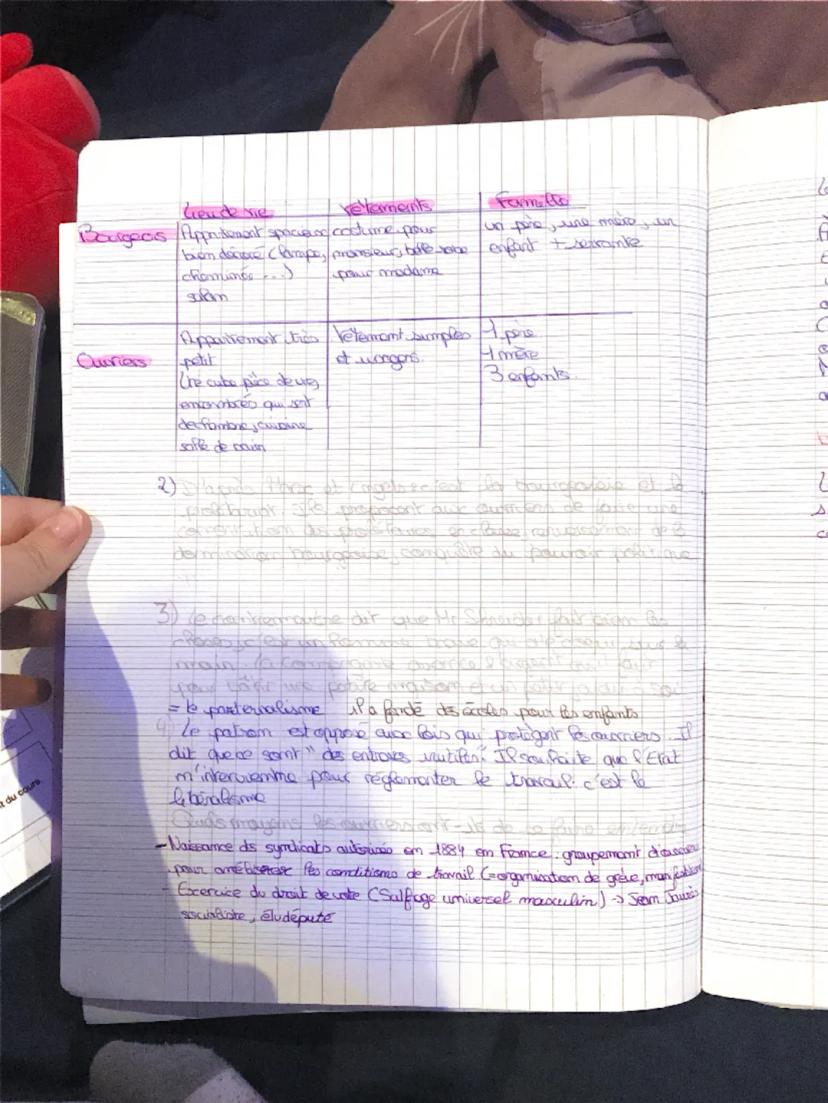 Lieu de vie Vêtements Famille
Bourgeois Appartement spacieux costume pour un père, une mère, un
bien décoré (lampe, monsieur, belle robe enfant + servante
cheminée ...) pour madame
salon
Appartement très Vêtement simples 1 père
Ouvriers petit et 1 mère
3 enfants
encombrés qui sert
de chambre, cuisine
salle de bain
2) D'après Marx et Engels la bourgeoisie et le
prolétariat. Ils proposent aux ouvriers de faire une
des prolétaires en classe, renversement de la
domination bourgeoise, conquête du pouvoir politique
3) Le contremaître dit que Mr Shneider fait bien les
choses, c'est un homme qui le sur la
main. La compagnie avance l'argent qu'il faut
pour bâtir une petite maison et un petit à soi
= le paternalisme il a fondé des écoles pour les enfants
4) Le patron est opposé aux lois qui protègent les ouvriers. Il
dit que ce sont "des entraves inutiles". Il souhaite que l'Etat
n'intervienne pour réglementer le travail: c'est le
libéralisme
Quels moyens les ouvriers ont-ils de se faire
- Naissance ds syndicats autorisés en 1884 en France: groupement
pour améliorer les conditions de travail (=organisation de grève,
- Exercice du droit de vote (Suffrage universel masculin) -> Jean Jaurès
socialiste, élu député